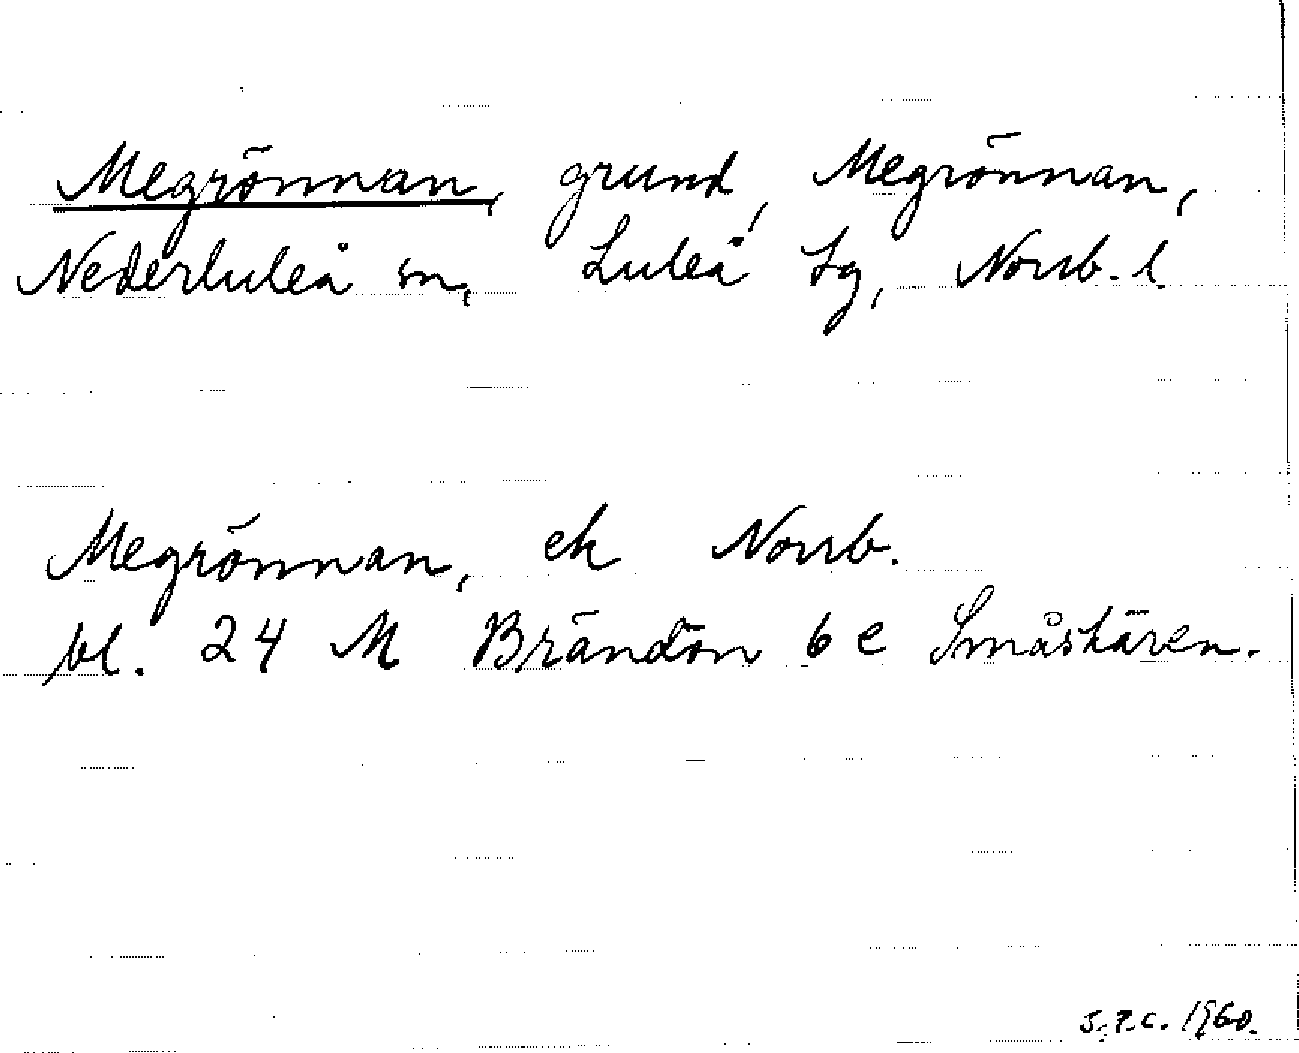 Megrönnan, grund, Megrönnan,
Nederluleå sn, Luleå tg, Norrb. l.
Megrönnan, ek Norrb.
bl. 24 M Brändön 6 e Småskären.
1960.